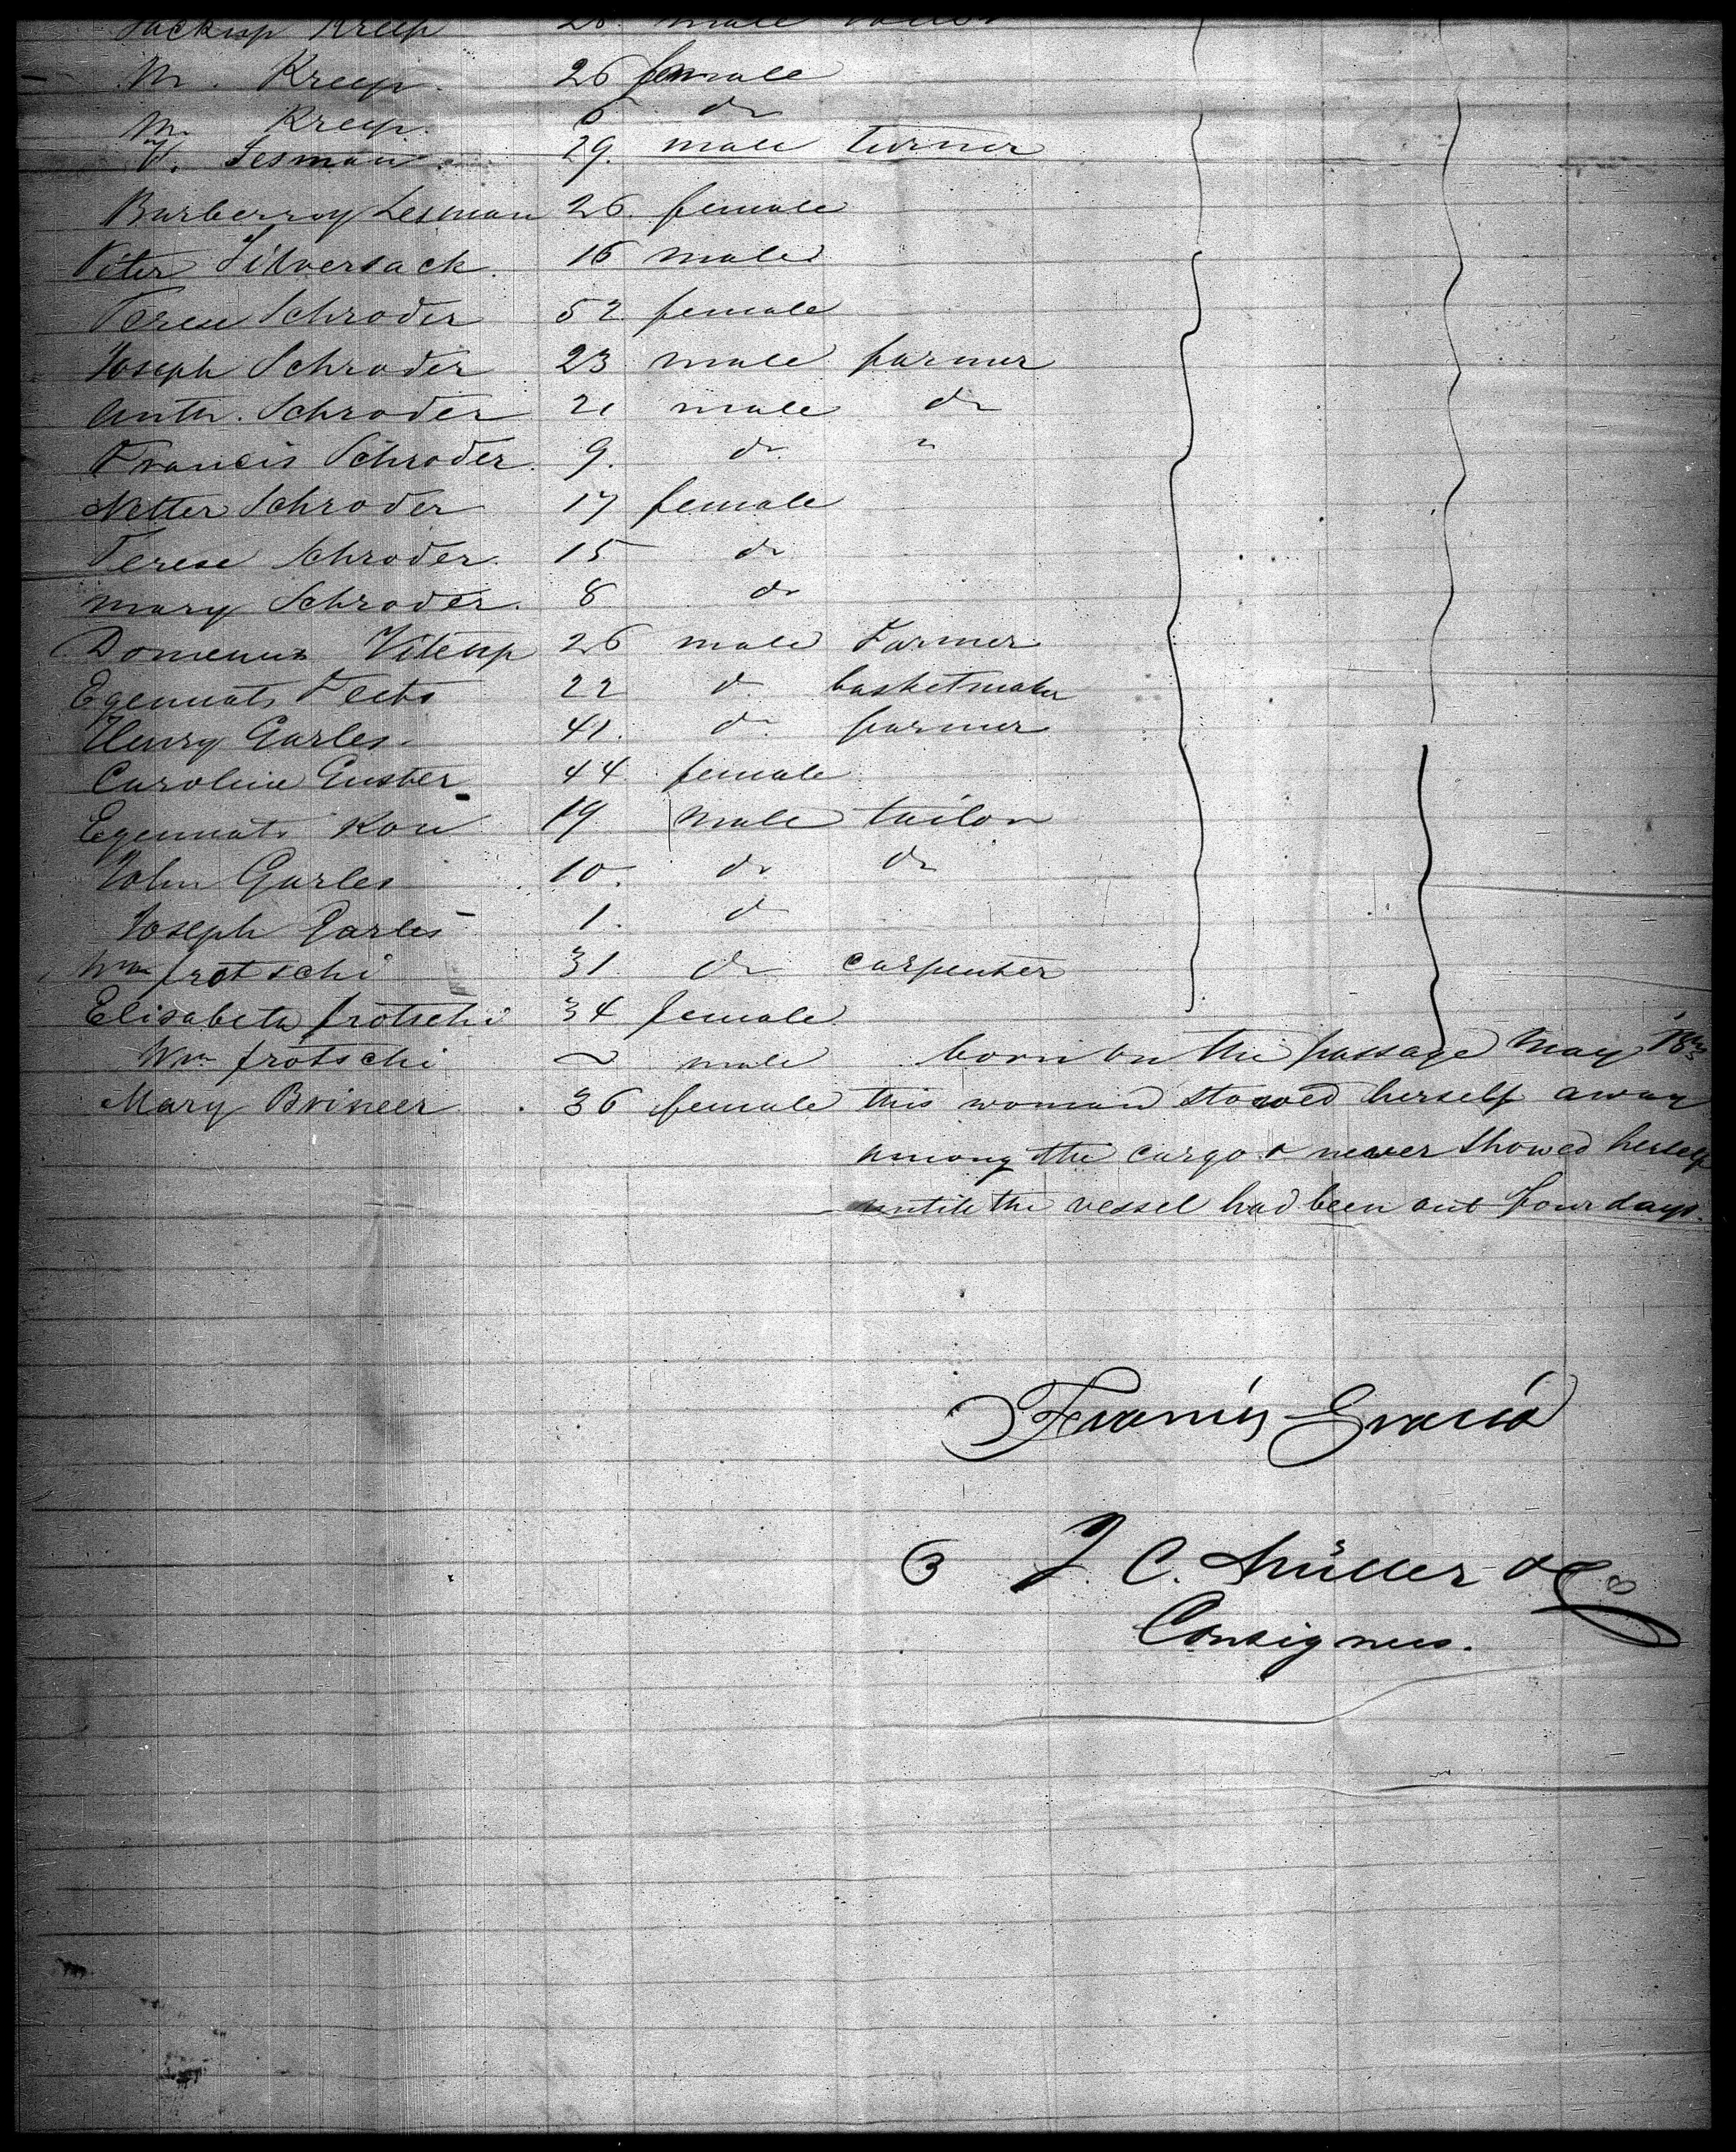 Kreep 26 male
M. Kreep. 26 female
M. Kreep. do
Lesman 29. male turner
Burberroy Lesman 26 female
Peter Silversack. 16 male
Terese Schroder 52 female
Joseph Schroder 23 male farmer
Anth. Schroder 21 male do
Francis Schroder. 9. do "
Netter Schroder 17 female
Terese Schroder. 15 do
Mary Schroder. 8 do
26 male Farmer
22 do basketmaker
Henry Garles. 41. do farmer
Caroline Guster 44 female
19 male tailor
John Garles 10. do do
Joseph Garles 1. do
Wm frotschi 31 do carpenter
Elisabeta frotschi 34 female
Wm frotschi ~ male born on the passage May 18th
Mary Brineer. 36 female this woman stowed herself away
among the cargo & never showed herself
until the vessel had been out four days.
Francis
J. C. Müller & Co
Consignees.